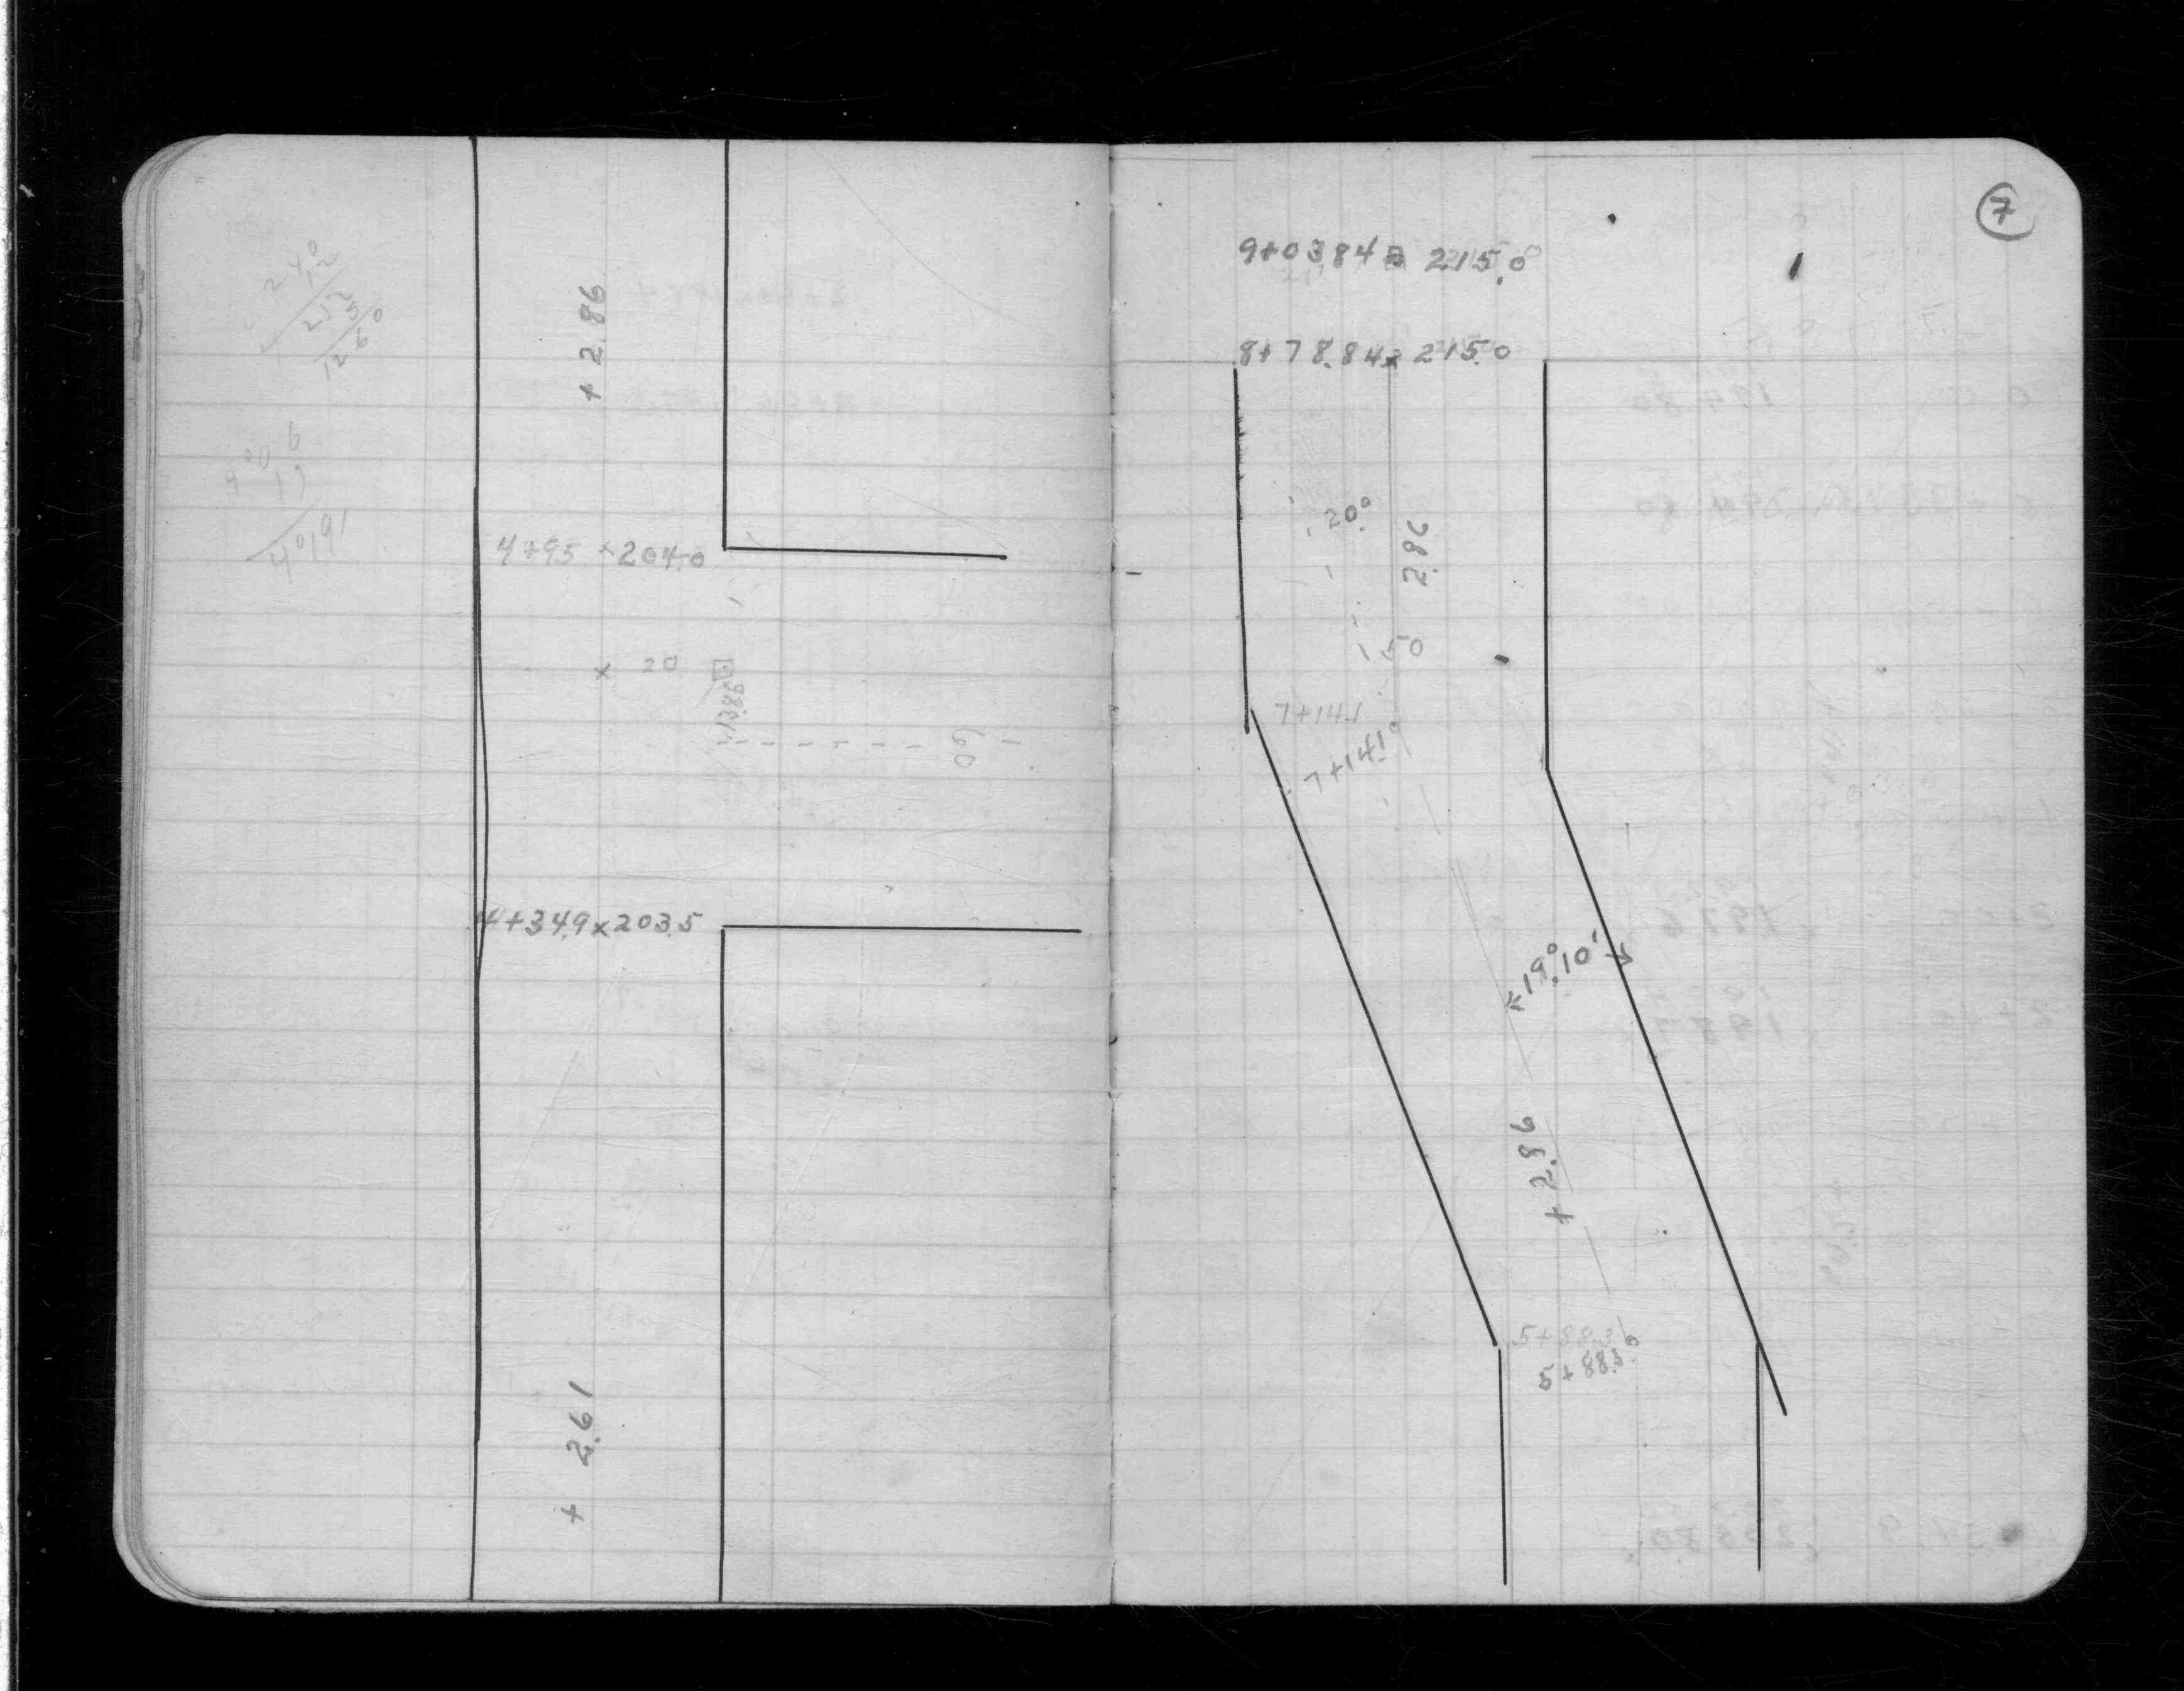 240
12
252
5
1260
+ 2.86
4+95 × 204.0
× 20
60
4+34.9 × 203.5
+ 2.61
7
9+03.84 = 215.0
8+78.84 × 215.0
20°
2.86
50
7+14.1
7+14.1°
19°10'
+ 2.86
5+88.3
5+88.3